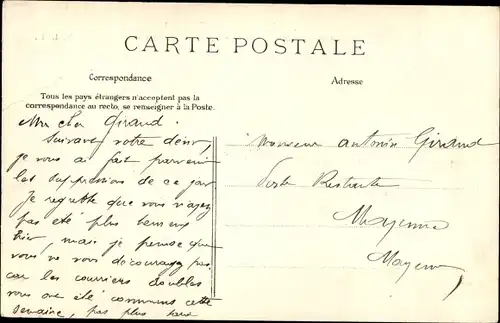 CARTE POSTALE
Correspondance
Adresse
Tous les pays étrangers n'acceptent pas la
correspondance au recto, se renseigner à la Poste.
Mon cher Giraud.
Suivant votre désir,
je vous ai fait parvenir
les de ce jour
Je regrette que vous n'ayez
pas été plus heureux
hier, mais je pense que
vous ne vous découragez pas
car les courriers doubles
vous ont été communs cette
semaine, pas plus
Monsieur Antonin Giraud
Poste Restante
Mayenne
Mayenne